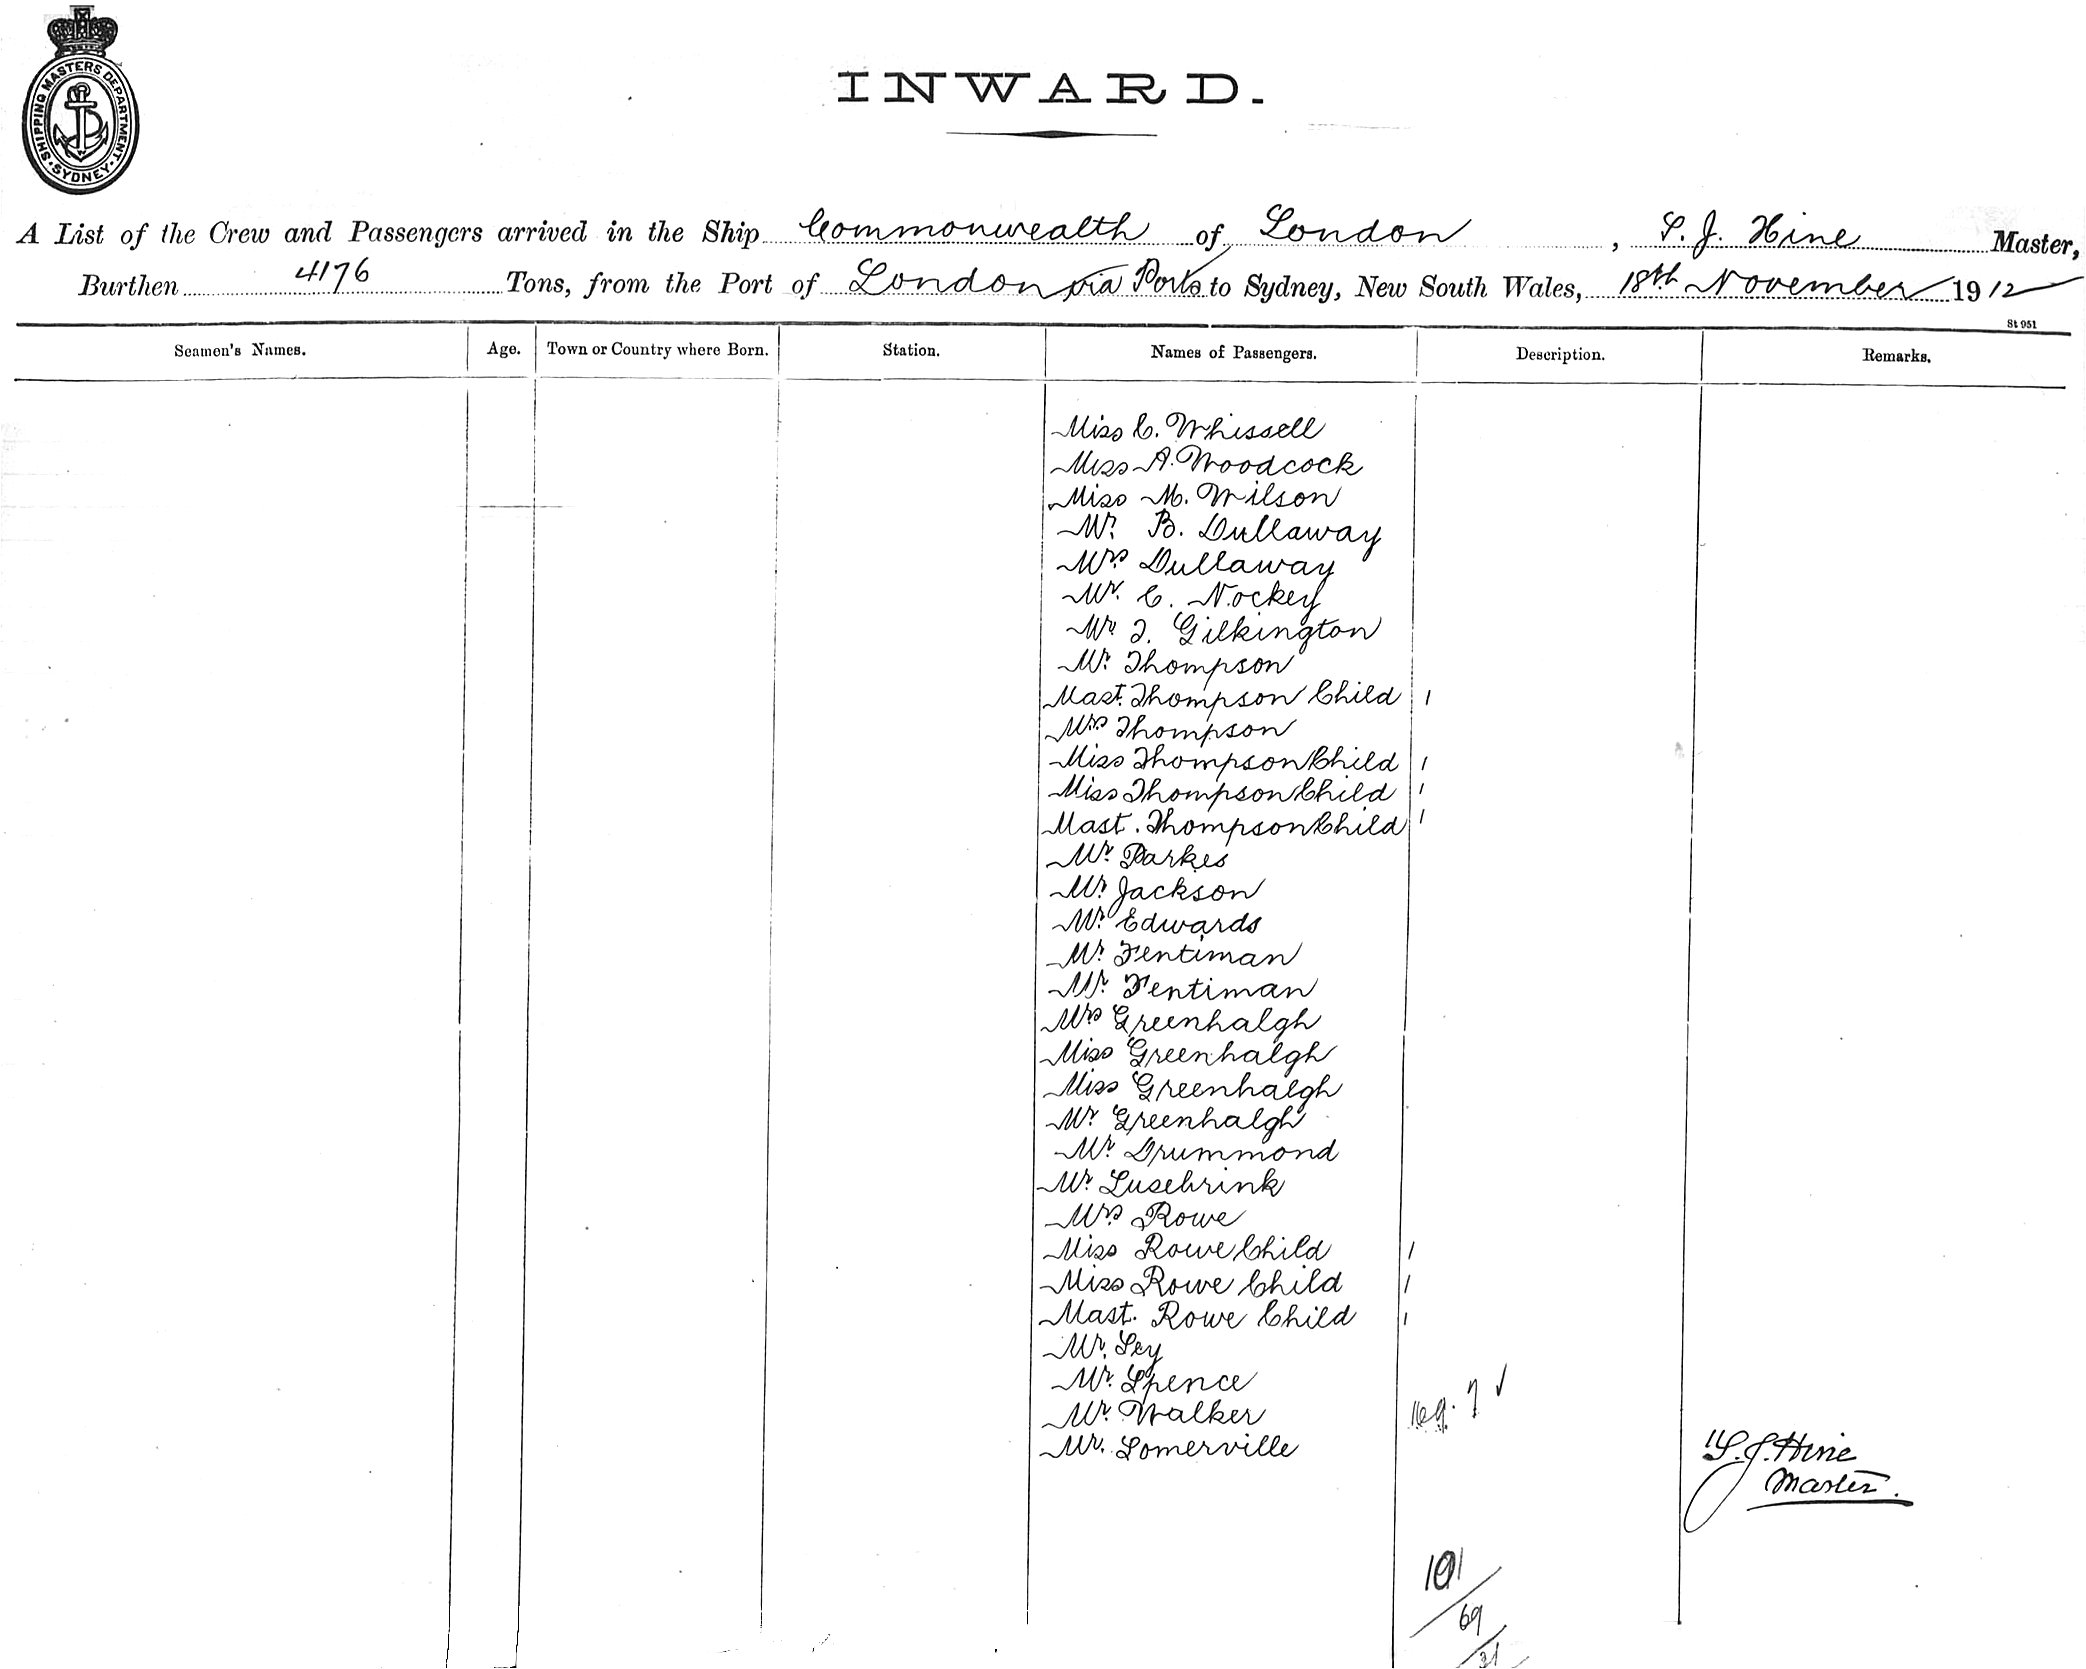 SHIPPING MASTERS DEPARTMENT. SYDNEY.
INWARD.
A List of the Crew and Passengers arrived in the Ship Commonwealth of London, S. J. Hine Master,
Burthen 4176 Tons, from the Port of London via Ports to Sydney, New South Wales, 18th November 1912
St 951
Seamen's Names. Age. Town or Country where Born. Station. Names of Passengers. Description. Remarks.
Miss C. Whissell
Miss A. Woodcock
Miss M. Wilson
Mr. B. Dullaway
Mrs Dullaway
Mr. C. Nockey
Mr. J. Gilkington
Mr. Thompson
Mast. Thompson Child 1
Mrs Thompson
Miss Thompson Child 1
Miss Thompson Child 1
Mast. Thompson Child 1
Mr. Parkes
Mr. Jackson
Mr. Edwards
Mr. Fentiman
Mr. Fentiman
Mrs Greenhalgh
Miss Greenhalgh
Miss Greenhalgh
Mr. Greenhalgh
Mr. Drummond
Mr. Lusebrink
Mrs Rowe
Miss Rowe Child 1
Miss Rowe Child 1
Mast. Rowe Child 1
Mr. Ley
Mr. Spence
Mr. Walker
Mr. Somerville
S. J. Hine
Master.
101
69